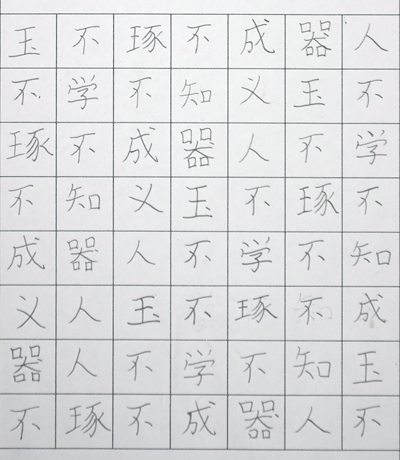 玉不琢不成器人
不学不知义玉不
琢不成器人不学
不知义玉不琢不
成器人不学不知
义人玉不琢不成
器人不学不知玉
不琢不成器人不